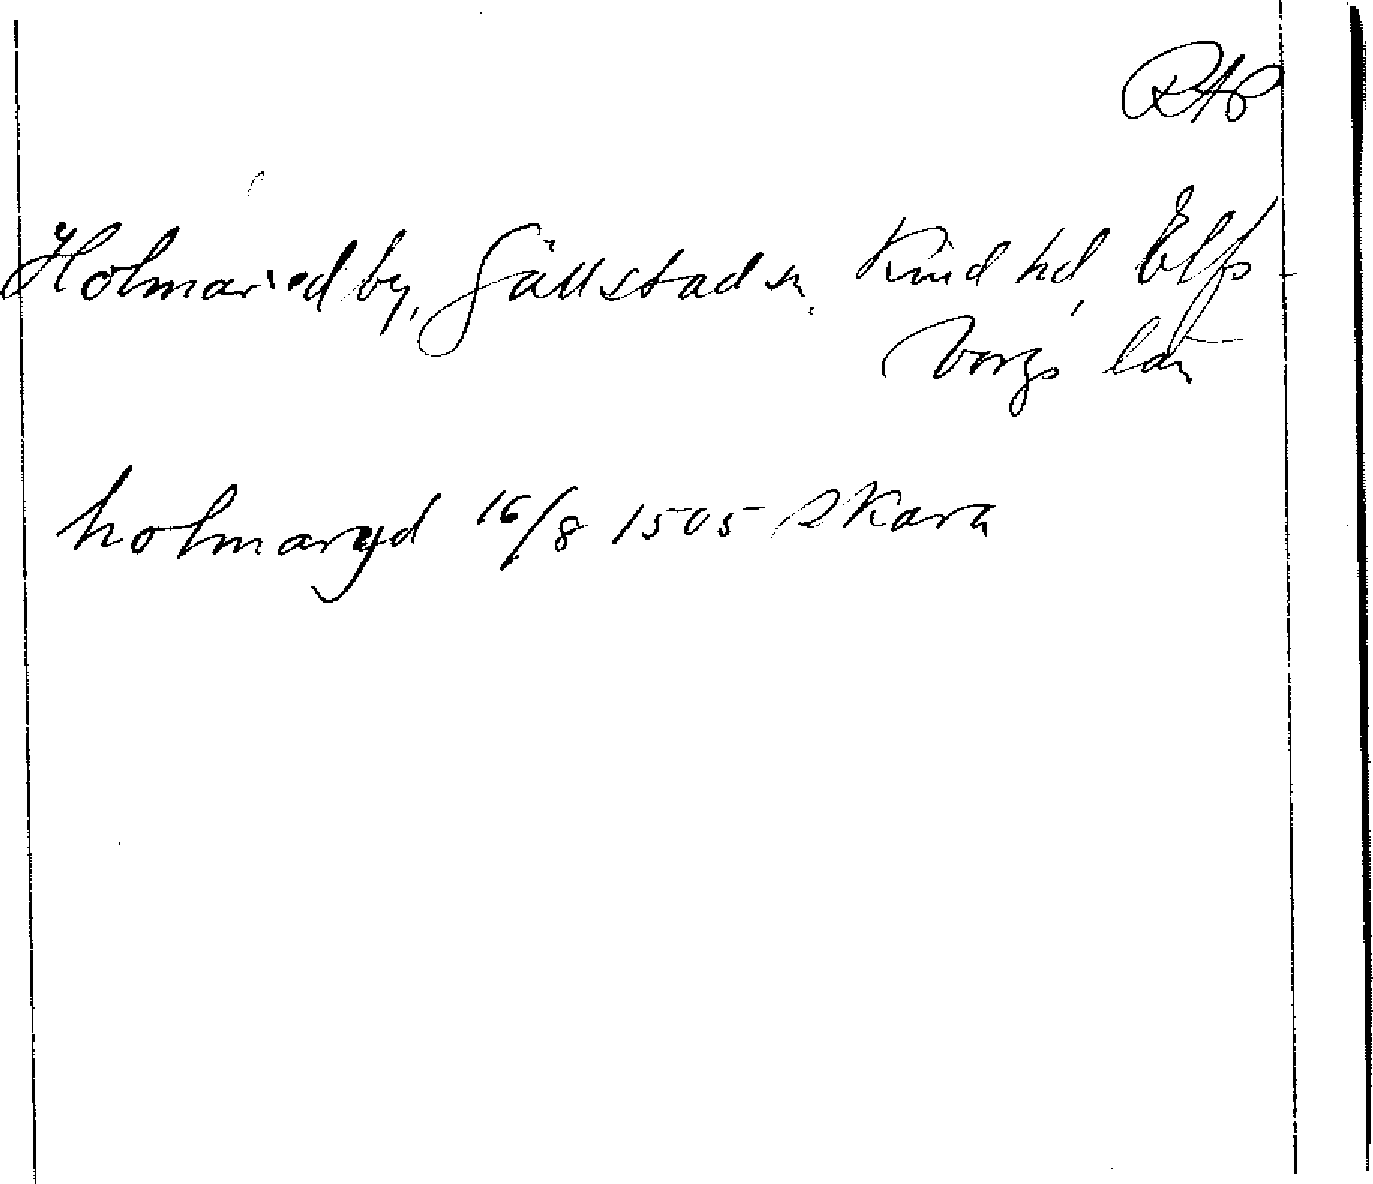 RAP
Holmaried by, Gällstad sn. Kind hd, Elfs-
borgs län
holmaryd 16/8 1505 Skara